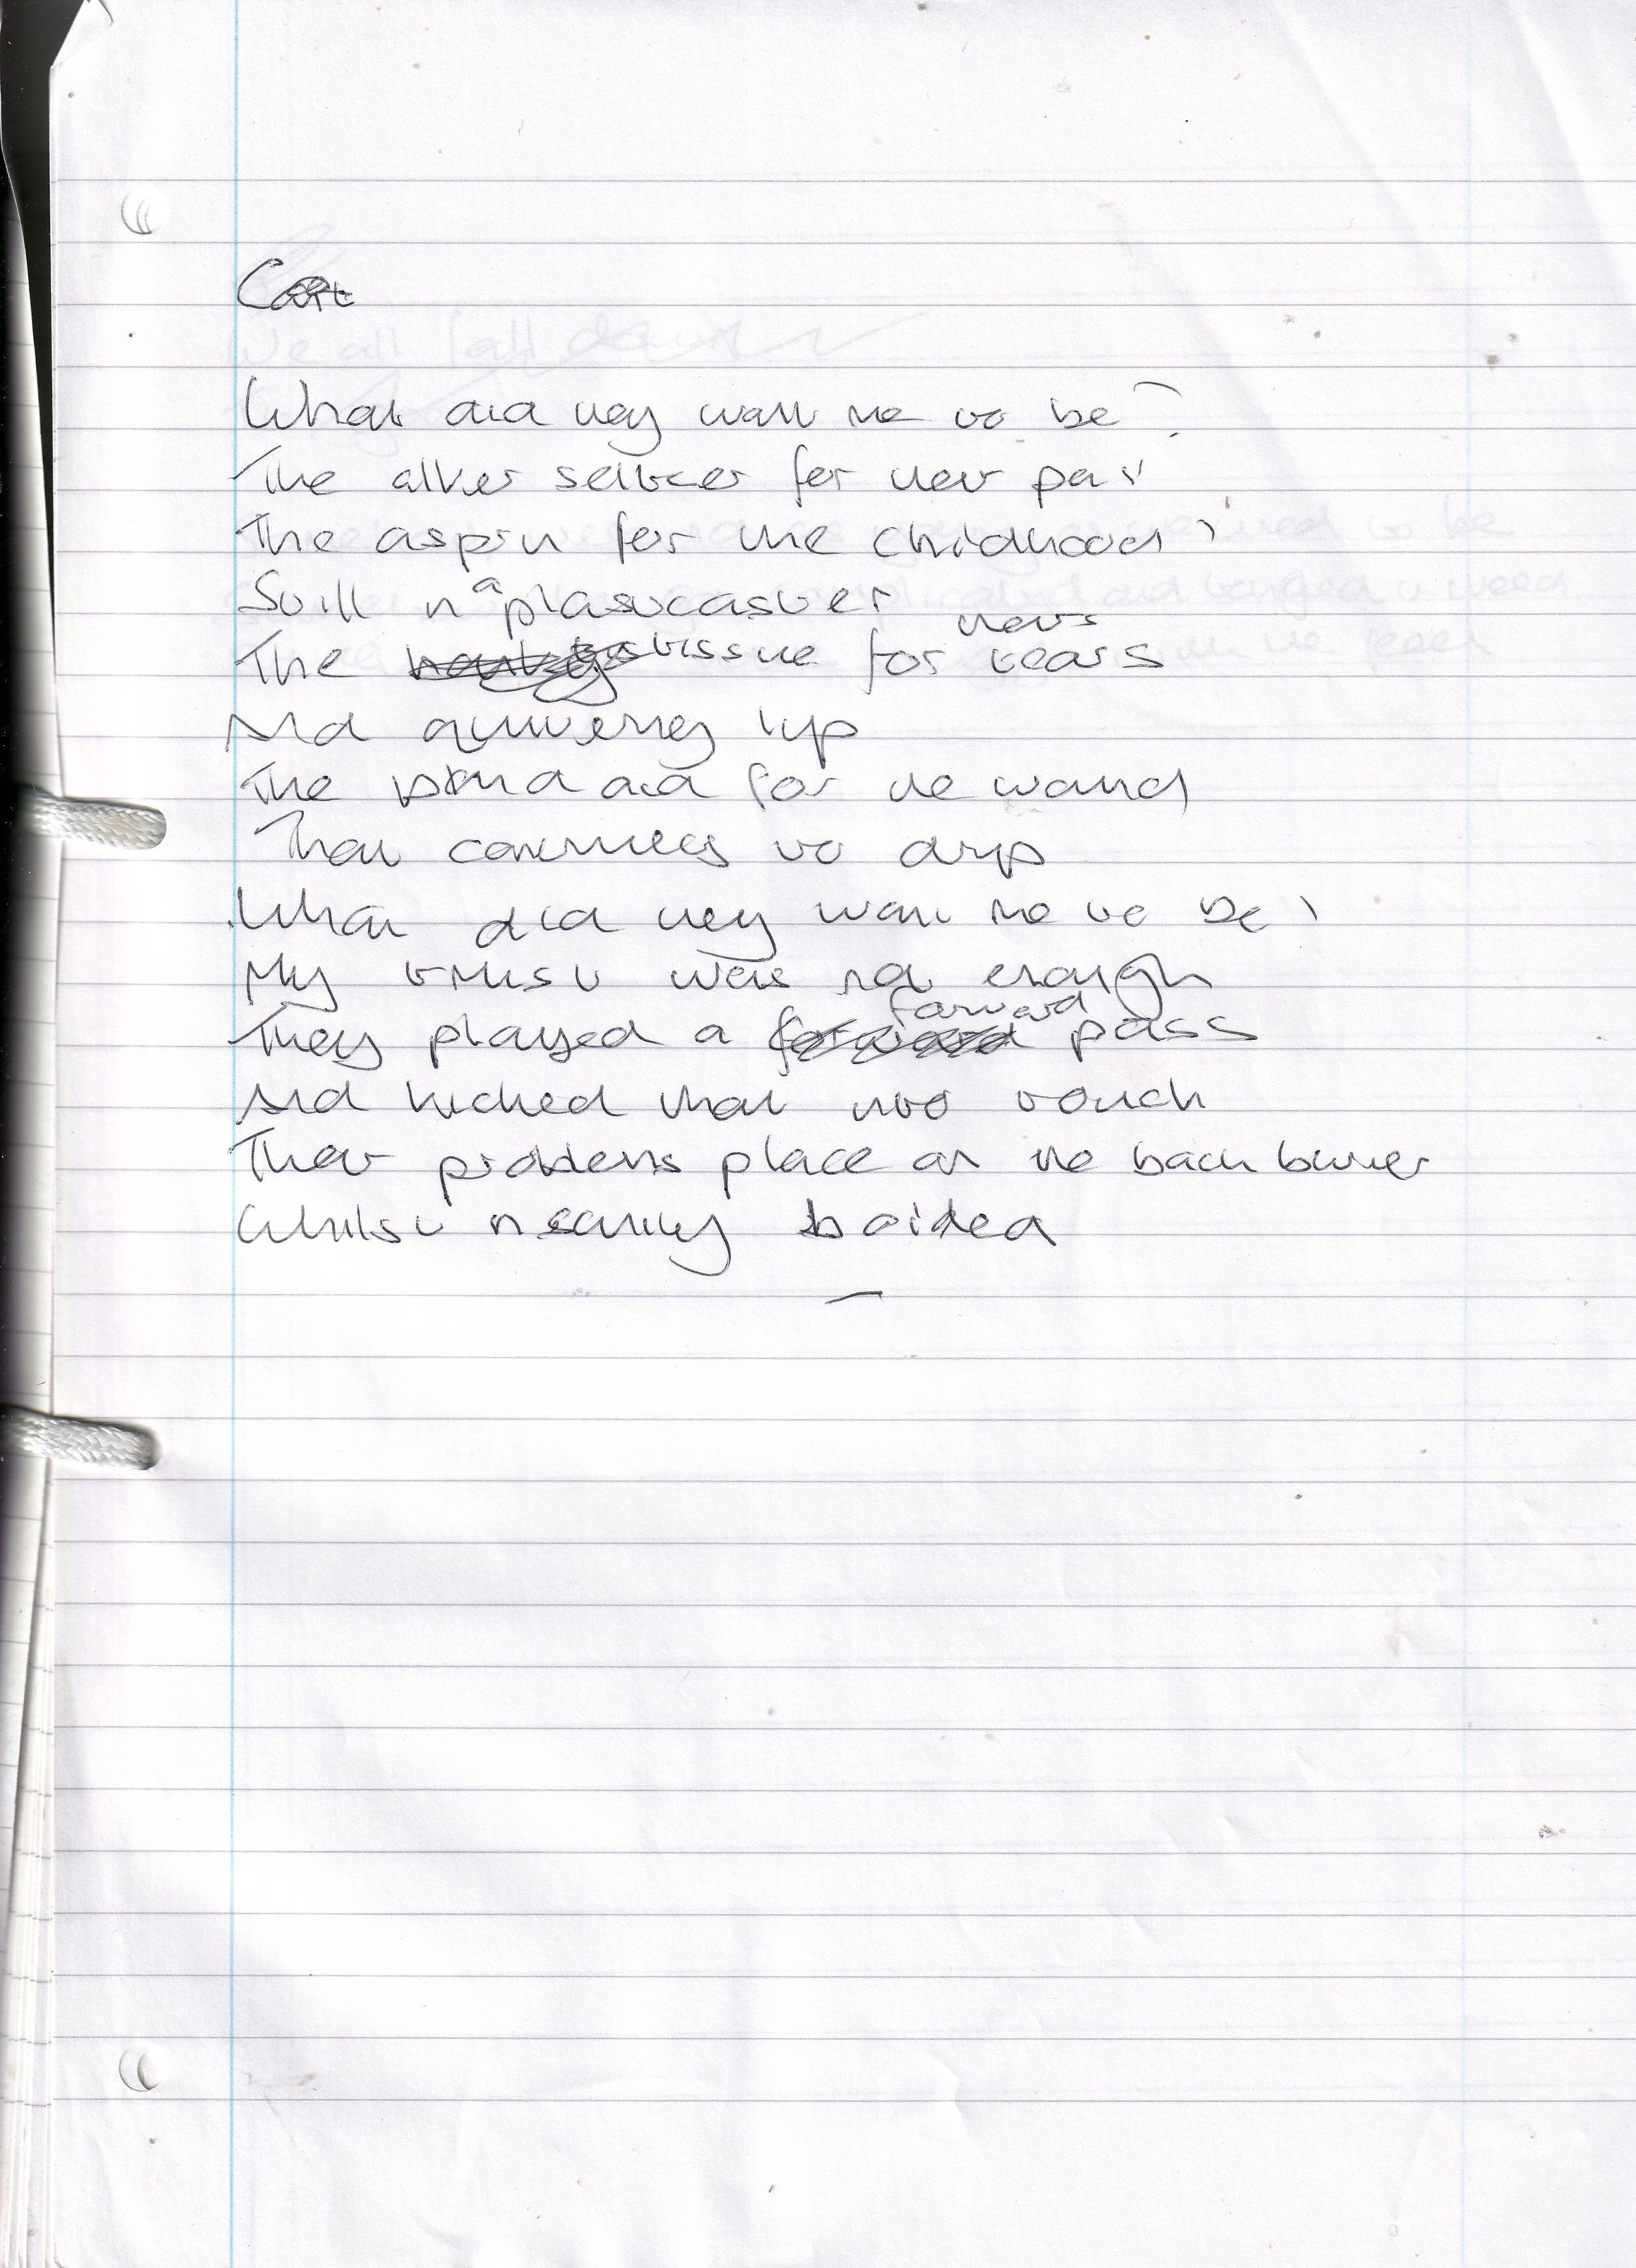 What did they want me to be?
The alker seltzer for their pain
The aspirin for the childhood?
Still in a plastcaster
The tissue for theirs tears
And quivering lip
The band aid for the wound
That continues to drip
What did they want me to be?
My trust was not enough
They played a forward pass
And kicked that into touch
Their problems place on the back burner
Whilst insanity